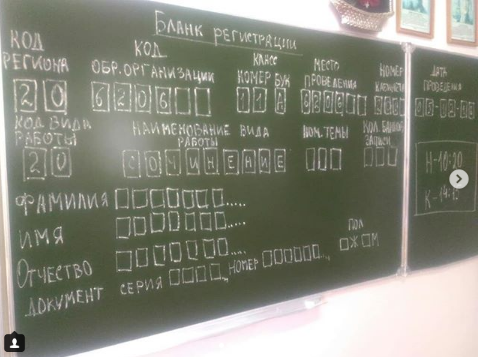 Бланк регистрации
КОД РЕГИОНА
20
КОД ОБР. ОРГАНИЗАЦИИ
6206
КЛАСС
НОМЕР БУК
11
МЕСТО ПРОВЕДЕНИЯ
НОМЕР КАБИНЕТА
ДАТА ПРОВЕДЕНИЯ
КОД ВИДА РАБОТЫ
20
НАИМЕНОВАНИЕ ВИДА РАБОТЫ
СОЧИНЕНИЕ
НОМ. ТЕМЫ
КОЛ.
Н-10:20
ФАМИЛИЯ
ИМЯ
ОТЧЕСТВО
ПОЛ
Ж М
ДОКУМЕНТ СЕРИЯ НОМЕР